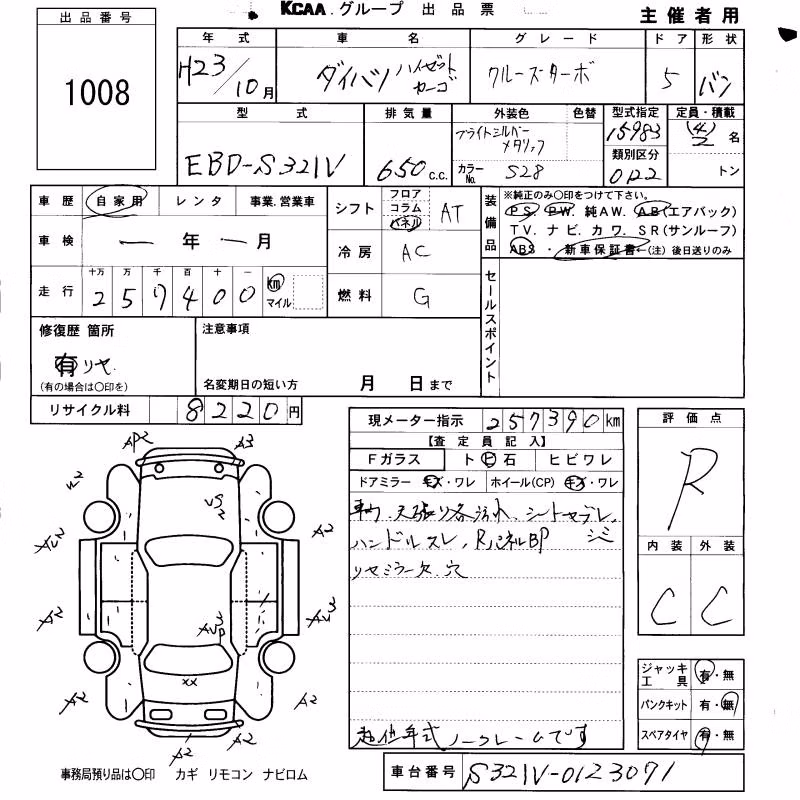 KCAA.グループ 出品票
主催者用
出品番号
1008
年式 車名 グレード ドア 形状
H23/10月 ダイハツ ハイゼット カーゴ クルーズターボ 5 バン
型式 排気量 外装色 色替 型式指定 定員・積載
EBD-S321V 650 c.c. ブライトシルバー メタリック 15983 (4) 2 名
カラーNo. S28 類別区分 0122 トン
車歴 自家用 レンタ 事業.営業車
シフト フロア コラム パネル AT
装備品 ※純正のみ〇印をつけて下さい。
PS. PW. 純AW. AB(エアバック)
TV. ナビ. カワ. SR(サンルーフ)
ABS ・ 新車保証書←(注) 後日送りのみ
車検 ー年ー月
冷房 AC
走行 十万 万 千 百 十 一
257400 km マイル
燃料 G
セールスポイント
修復歴 箇所
有 リヤ
(有の場合は〇印を)
注意事項
名変期日の短い方 月 日まで
リサイクル料 8220円
現メーター指示 257390km
【査定員記入】
Fガラス ト ビ 石 ヒビワレ
ドアミラー キズ・ワレ ホイール(CP) キズ・ワレ
天張り各汚れ、シート
ハンドルスレ、RパネルBP シミ
リヤミラー欠.穴
年式 ノークレームです
評価点
R
内装 外装
C C
ジャッキ工具 有・無
パンクキット 有・無
スペアタイヤ 有・無
AP2 A3
A2
A2 A2
A2 A2
A2 A2
XX
事務局預り品は〇印 カギ リモコン ナビロム
車台番号 S321V-0123071